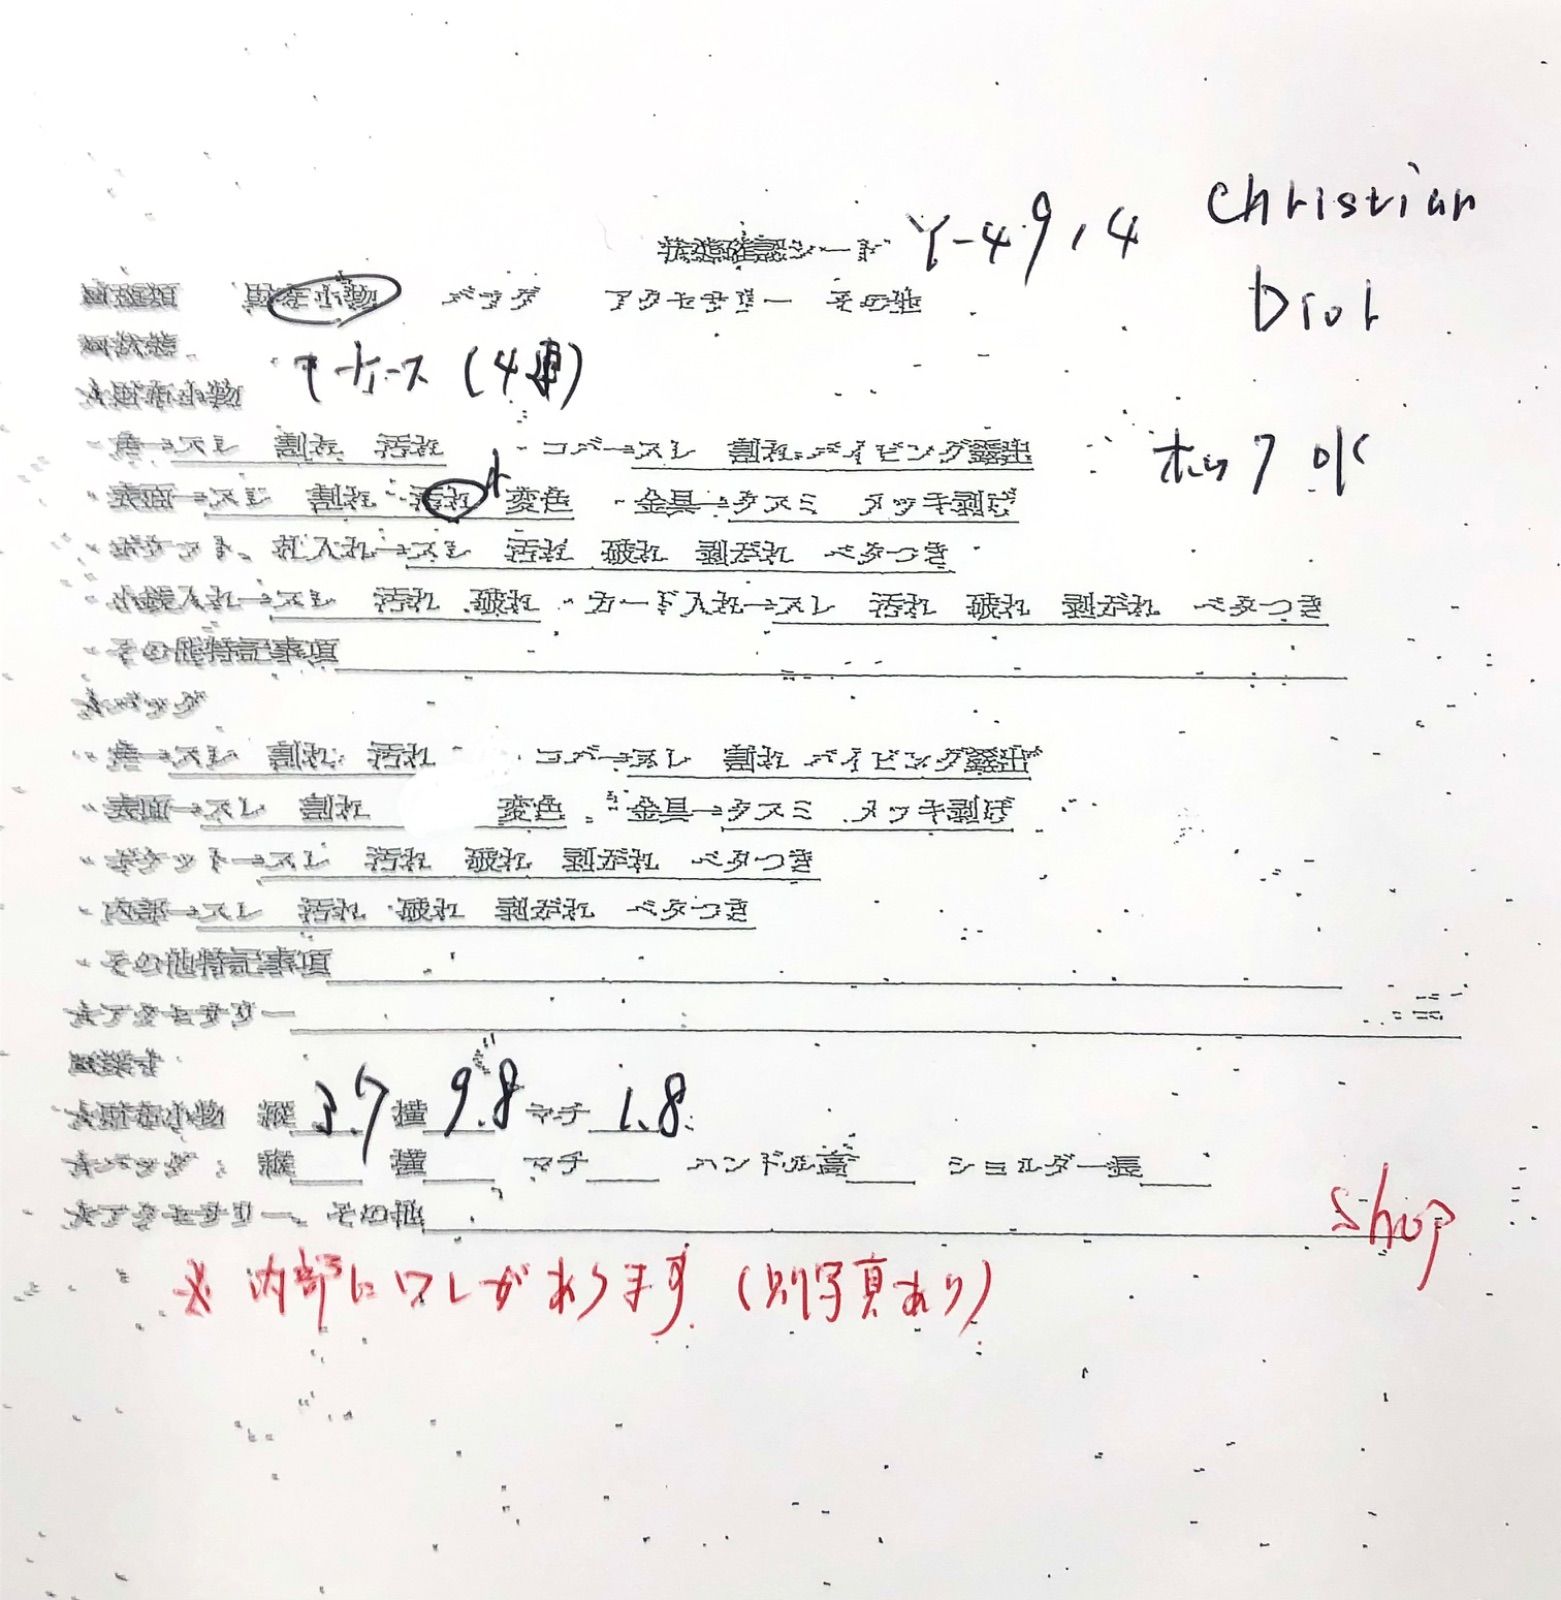 状態確認シート Y-49,4 Christian
Dior
■種類 財布小物 バッグ アクセサリー その他
■状態
キーケース (4連)
★財布小物
・角→スレ 割れ 汚れ ・コバ→スレ 割れ パイピング露出
ホック OK
・表面→スレ 割れ 汚れ 小 変色 ・金具→クスミ メッキ剥げ
・ポケット、札入れ→スレ 汚れ 破れ 剥がれ ベタつき
・小銭入れ→スレ 汚れ 破れ ・カード入れ→スレ 汚れ 破れ 剥がれ ベタつき
・その他特記事項
★バッグ
・角→スレ 割れ 汚れ コバ→スレ 割れ パイピング露出
・表面→スレ 割れ 変色 ・金具→クスミ メッキ剥げ
・ポケット→スレ 汚れ 破れ 剥がれ ベタつき
・内部→スレ 汚れ 破れ 剥がれ ベタつき
・その他特記事項
★アクセサリー
■採寸
★財布小物 縦 3.7 横 9.8 マチ 1.8
★バッグ 縦 横 マチ ハンドル高 ショルダー長
★アクセサリー、その他
shop
※ 内部にワレがあります (別写真あり)